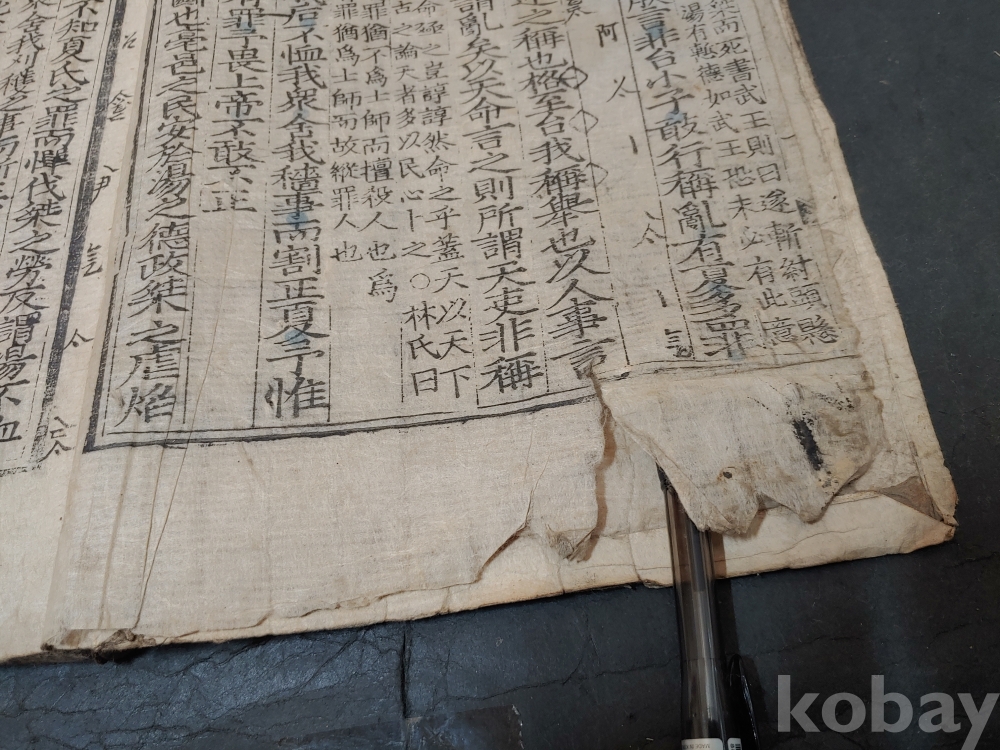 桀而死書武王則曰遂斬紂頭懸
湯有慙德如武王恐未必有此意
言非台小子敢行稱亂有夏多罪
阿
之稱也格至台我稱舉也以人事言
謂亂矣以天命言之則所謂天吏非稱
命極之豈諄諄然命之乎蓋天以天下
古之論天者多以民心卜之○林氏曰
罪猶不爲士師而擅殺人也爲
罪猶爲士師而故縱罪人也
我后不恤我眾舍我穡事而割正夏予惟
有罪予畏上帝不敢不正
斷也亳邑之民安於湯之德政桀之虐焰
不知夏氏之罪而憚伐桀之勞反謂湯不恤
舍我刈穫之事而
kobay